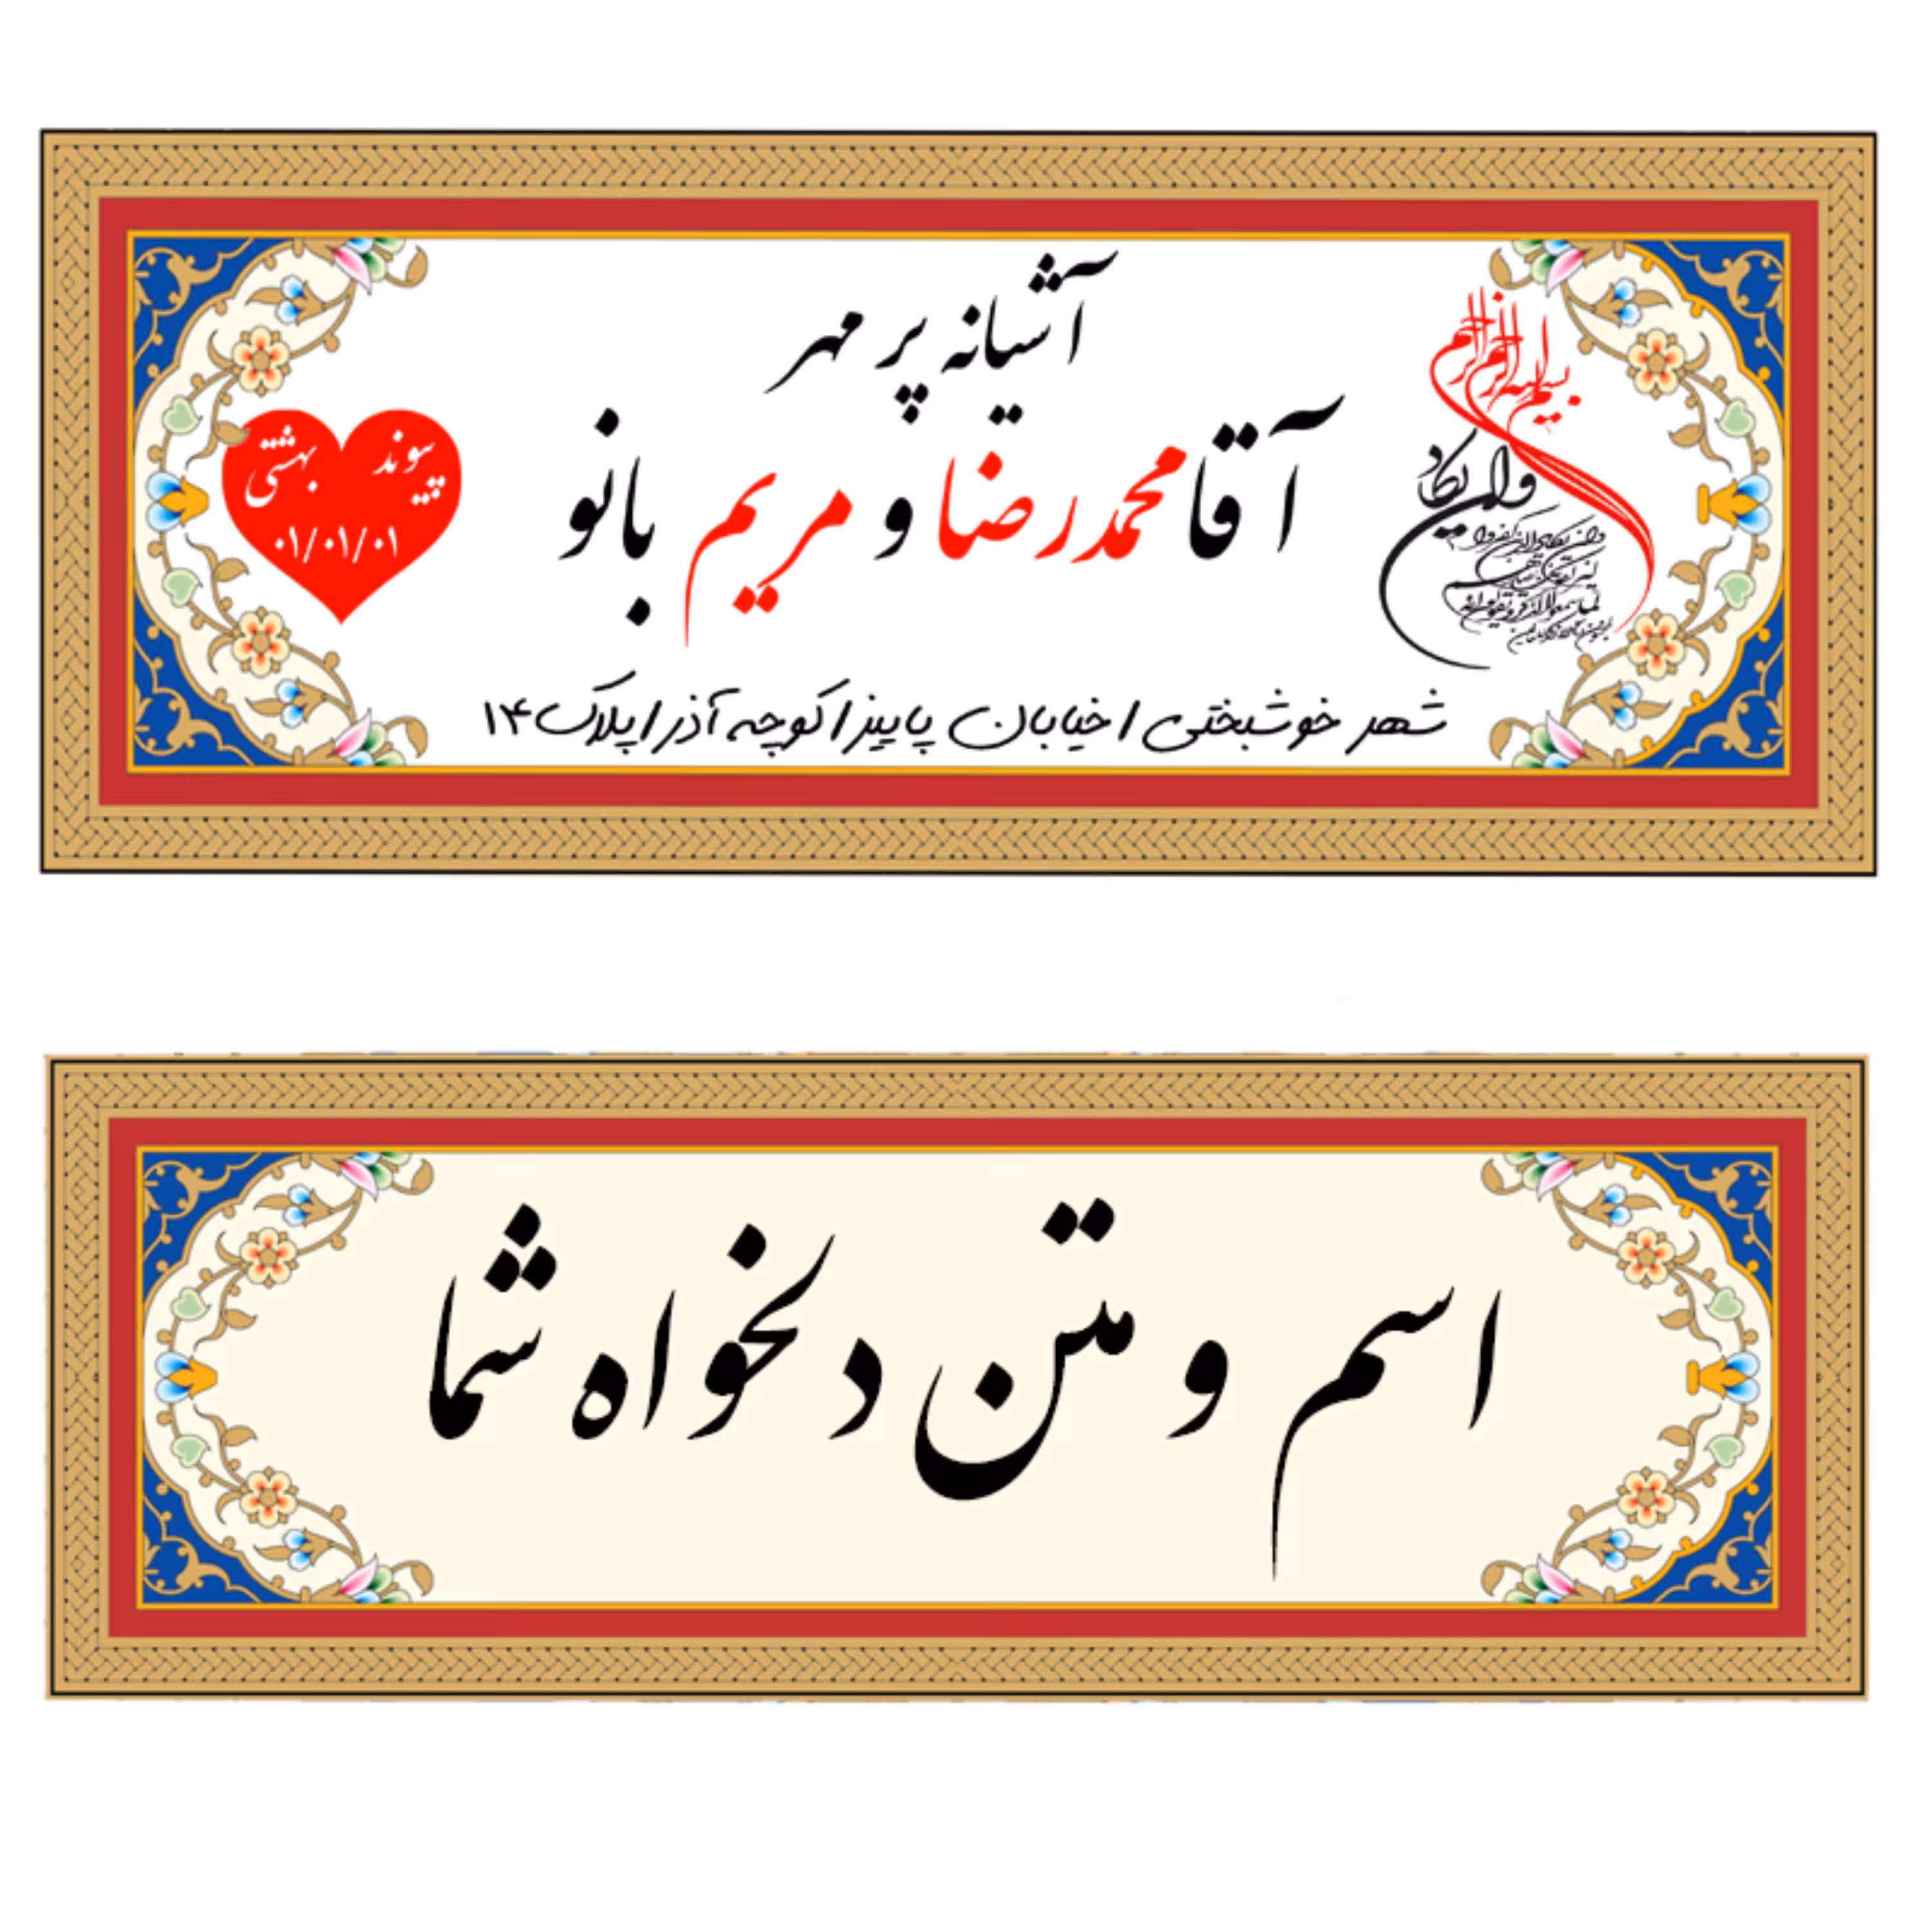 آشیانه پر مهر
بسم الله الرحمن الرحیم
آقا محمدرضا و مریم بانو
پیوند بهشتی
۰۱/۰۱/۰۱
وان یکاد
وان یکاد الذین کفروا
شهر خوشبختی / خیابان پاییز / کوچه آذر / پلاک ۱۴
اسم و متن دلخواه شما